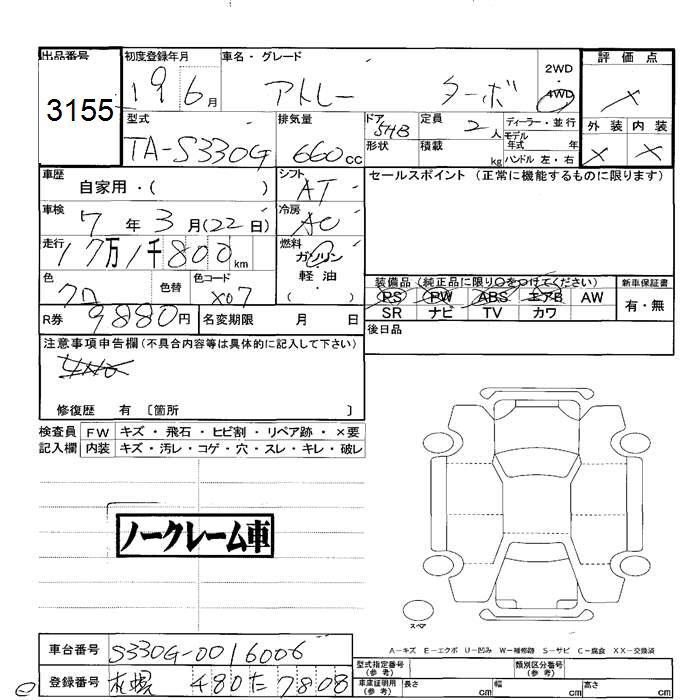 出品番号 初度登録年月 車名・グレード 2WD・4WD 評価点
3155 19 6月 アトレー ターボ ×
型式 排気量 ドア形状 5HB 定員 2人 ディーラー・並行 外装 内装
TA-S330G 660cc 積載 kg モデル年式 年 ハンドル 左・右 × ×
車歴 自家用・( ) シフト AT セールスポイント (正常に機能するものに限ります)
車検 7年3月(22日) 冷房 AC
走行 17万1千800km 燃料 ガソリン
軽油
( )
色 クロ 色替 色コード X07 装備品 (純正品に限り○を付けてください) 新車保証書
PS PW ABS エアB AW 有・無
R券 9880円 名変期限 月 日 SR ナビ TV カワ
注意事項申告欄(不具合内容等は具体的に記入して下さい) 後日品
修復歴 有 〔箇所 〕
検査員 FW キズ・飛石・ヒビ割・リペア跡・×要
記入欄 内装 キズ・汚レ・コゲ・穴・スレ・キレ・破レ
ノークレーム車
スペア
A-キズ E-エクボ U-凹み W-補修跡 S-サビ C-腐食 XX-交換済
車台番号 S330G-0016006 型式指定番号(参考) 類別区分番号(参考)
登録番号 札幌 480 た 7808 車庫証明用(参考) 長さ cm 幅 cm 高さ cm